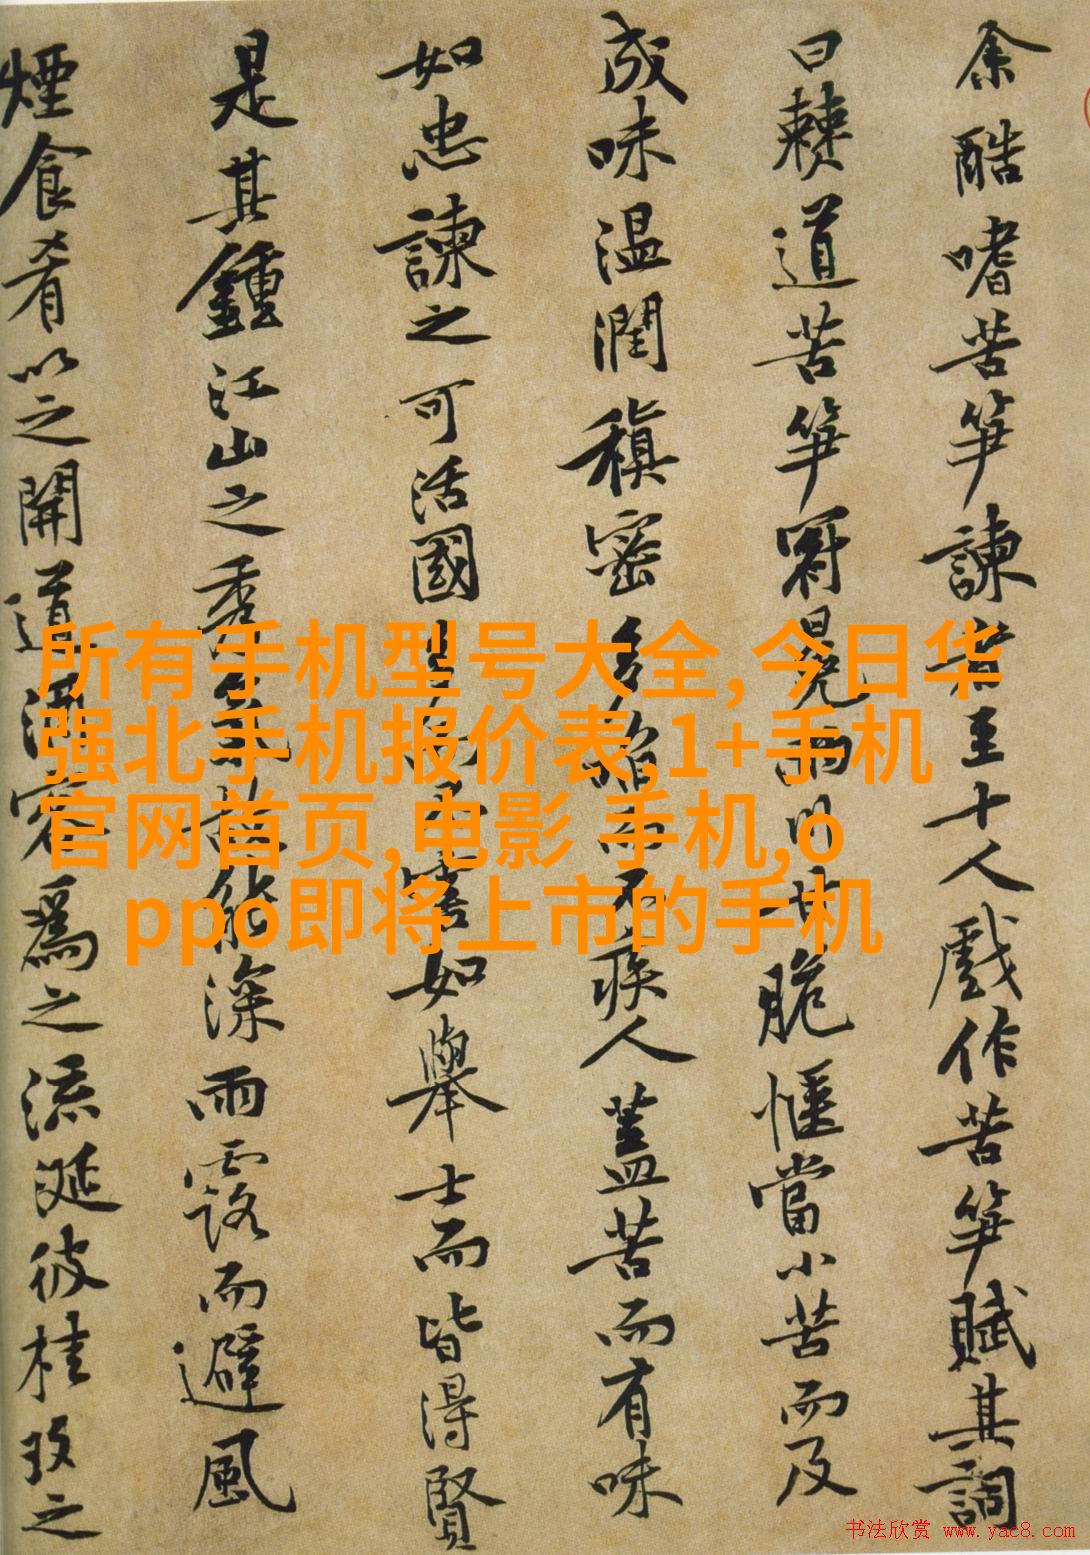 余酷嗜苦笋諫者至十人戲作苦笋賦其詞
曰僰道苦笋冠冕兩川甘脆愜當小苦而及
成味温潤稹密多啗而不疾人蓋苦而有味
如忠諫之可活國多而不害如舉士而皆得賢
是其鍾江山之秀氣故能深雨露而避風
煙食肴以之開道酒客爲之流涎彼桂玫之
所有手机型号大全,今日华
强北手机报价表,1+手机
官网首页,电影 手机,o
ppo即将上市的手机
书法欣赏 www.yac8.com